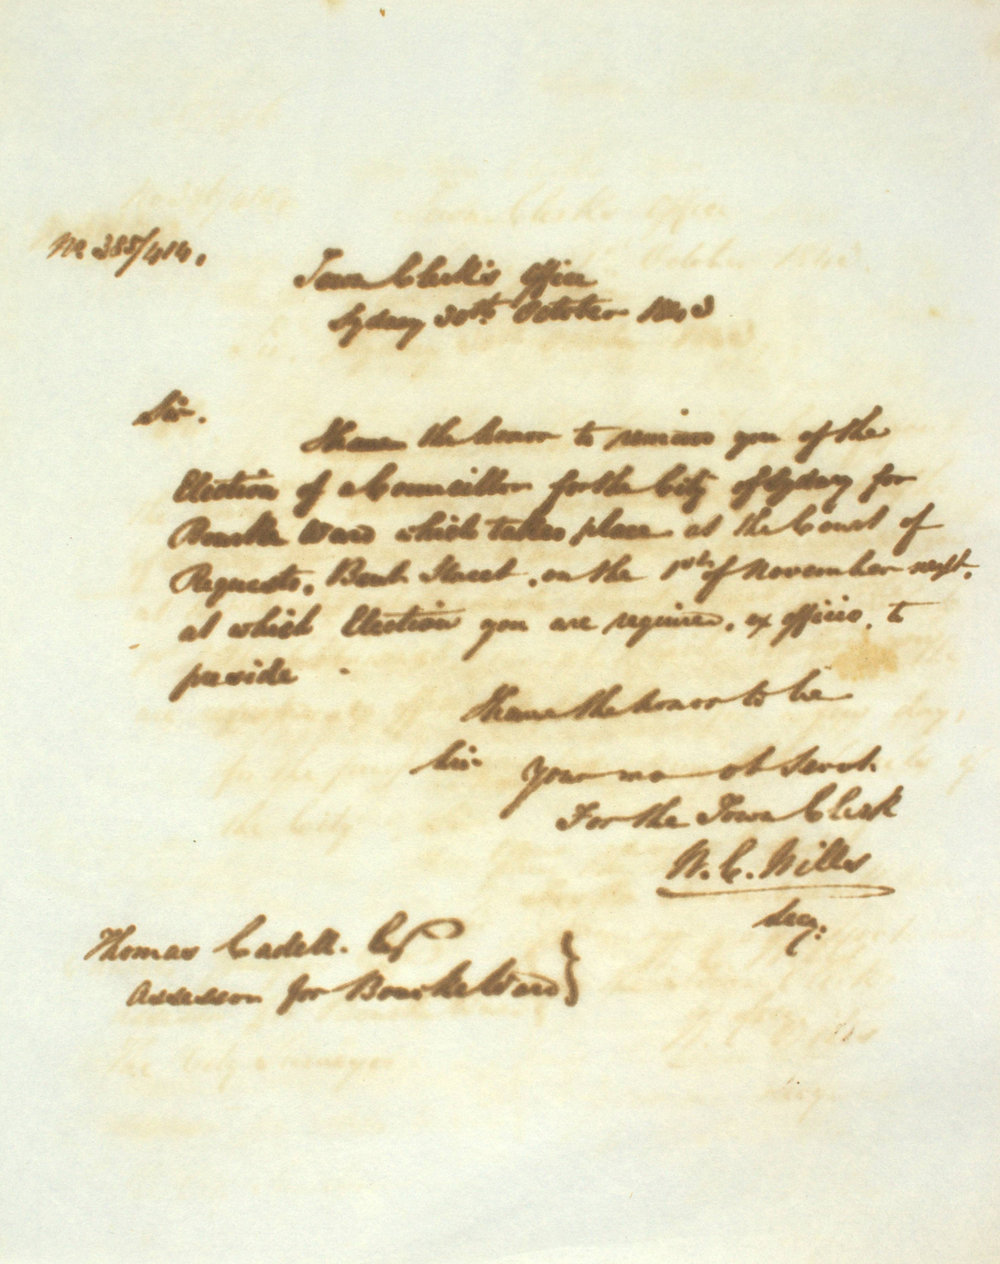 No 385/414.
Town Clerk's Office
Sydney 30th October 1843
Sir.
I have the honor to remind you of the
Election of a Councillor for the City of Sydney for
Bourke Ward which takes place at the Court of
Requests, Bent Street, on the 1st of November next.
at which Election you are required, ex officio, to
preside.
I have the honor to be
Sir Your mo ob Servt.
For the Town Clerk
W. C. Wills
Secy:
Thomas Cadell. Esq
Assessor for Bourke Ward }